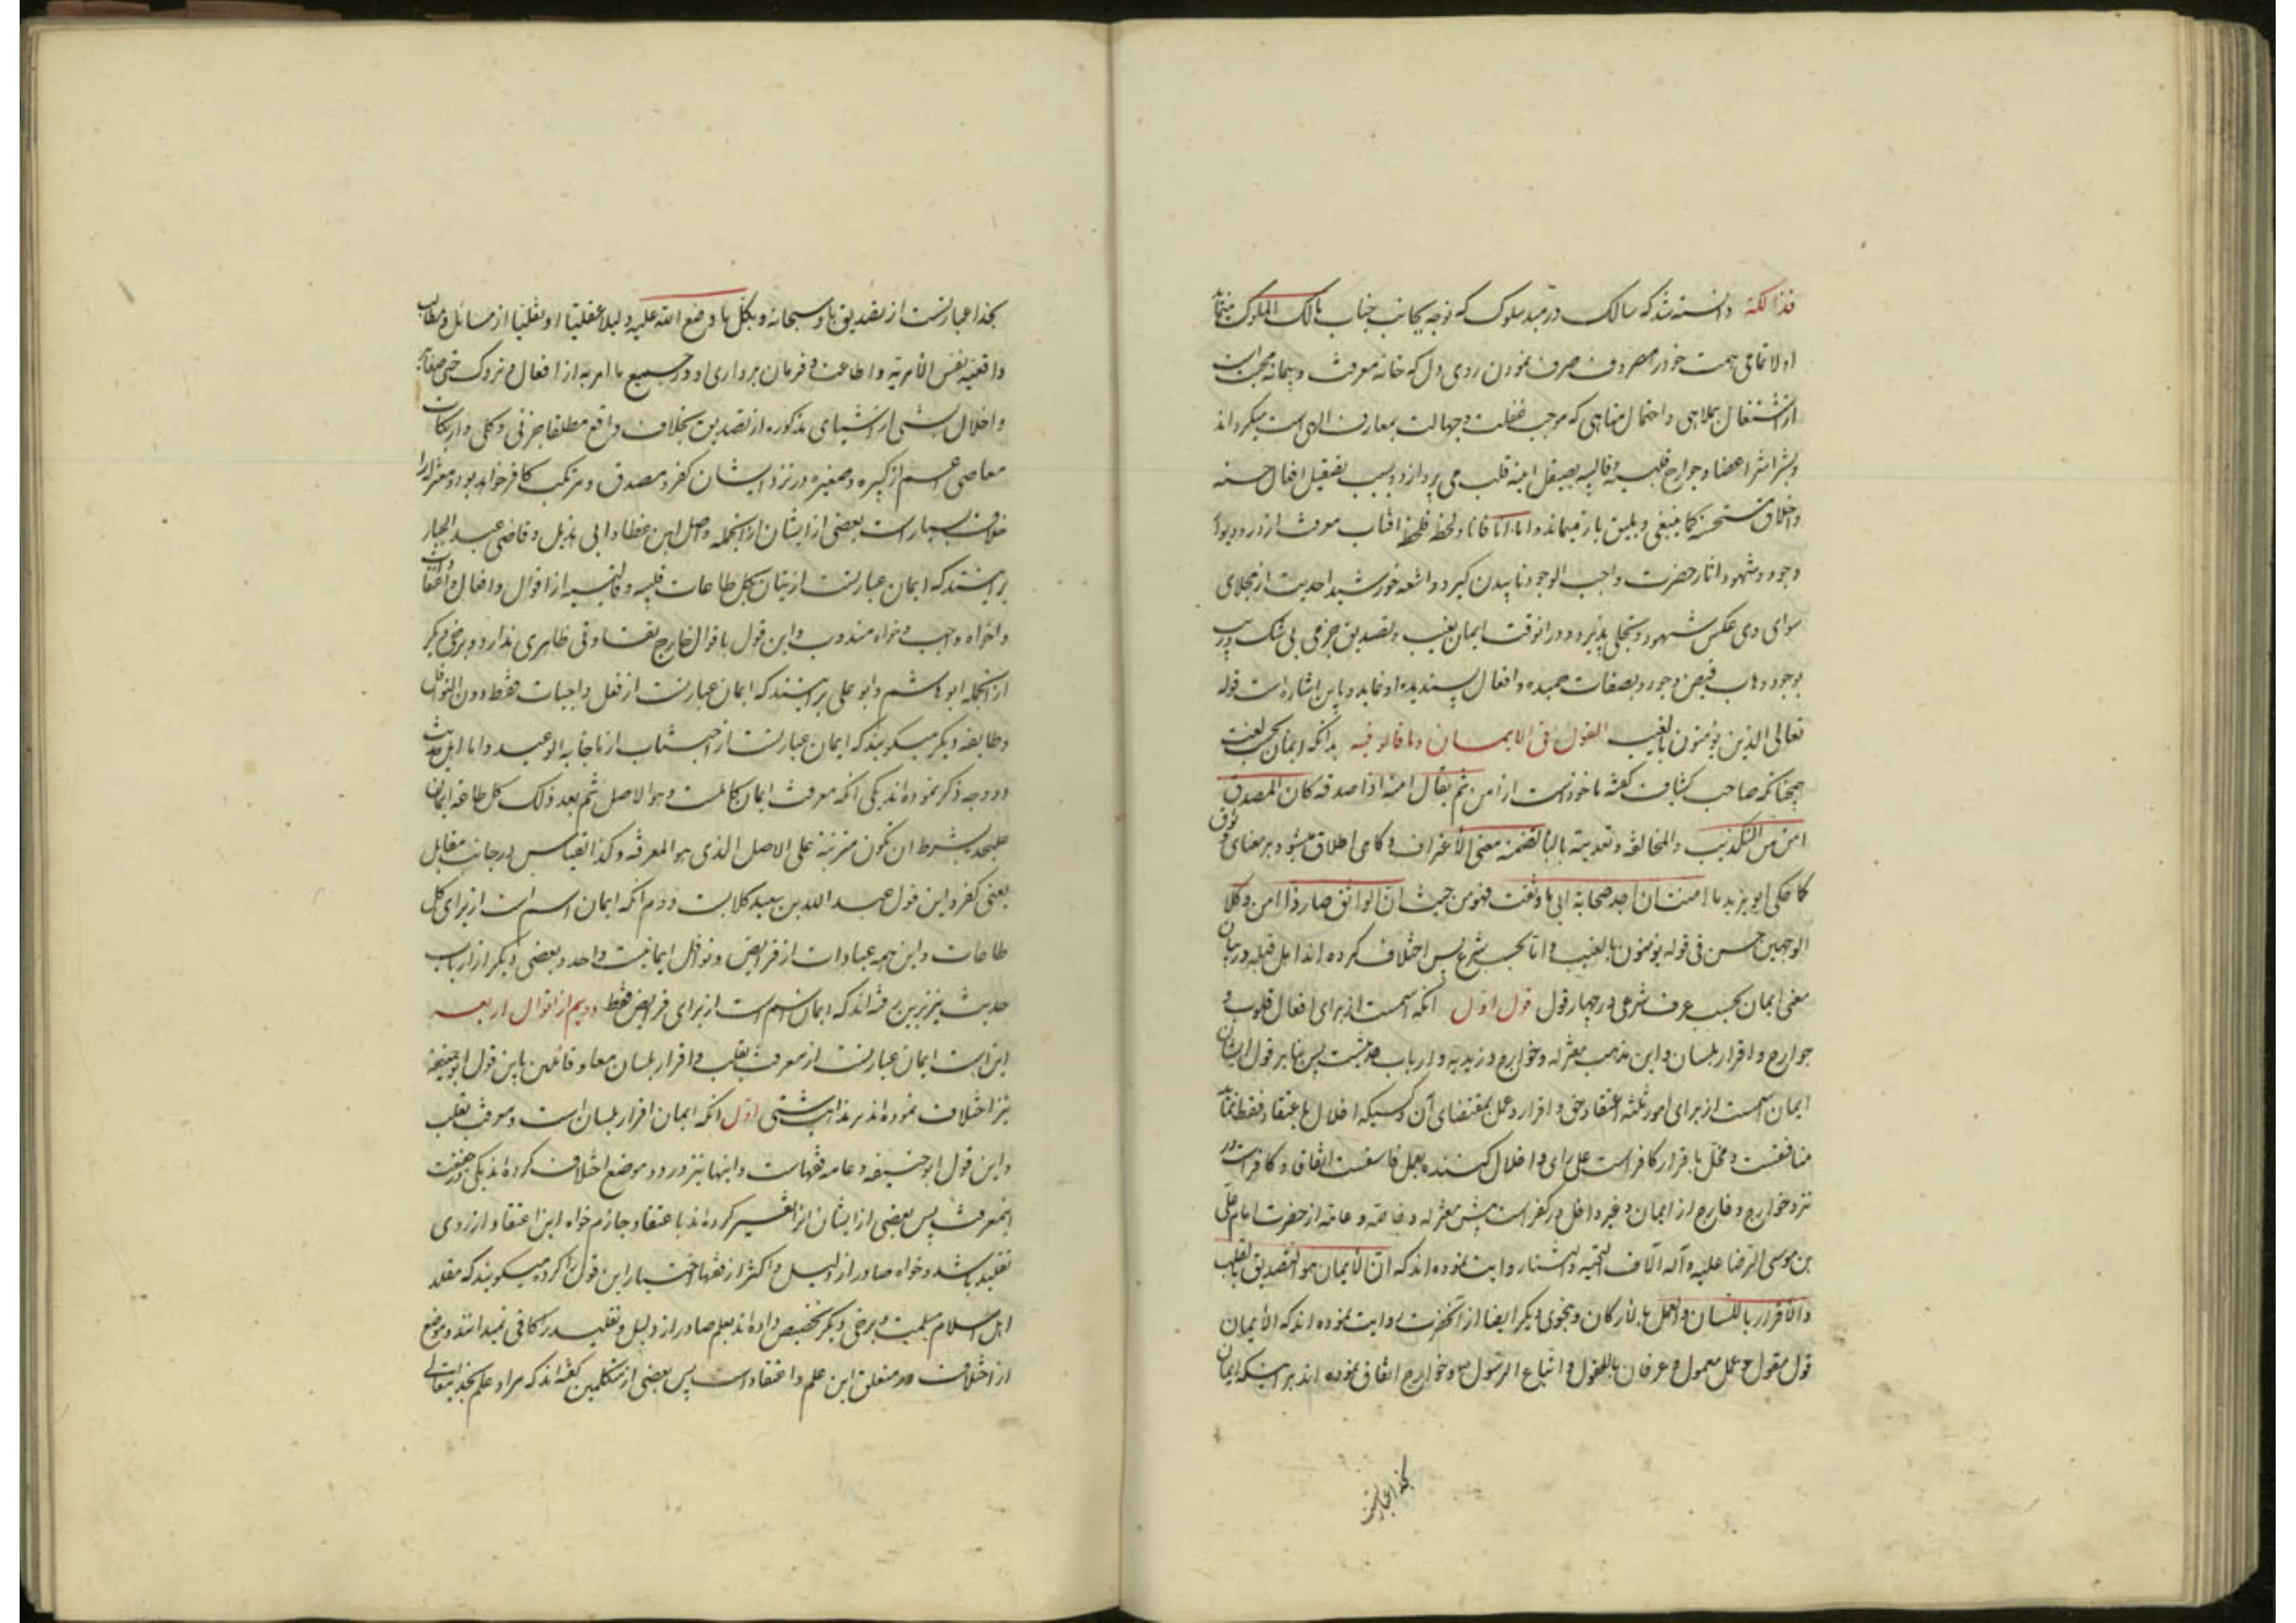 فذالکه دانسته شد که سالک در مبدء سلوک که توجه بجانب جناب مالک الملوک مینماید
اولا تمامی همت خود را مصروف صرف نمودن روی دل که خانه معرفت و پیمانه محبت است
از اشتغال بملاهی و احتمال مناهی که موجب غفلت و جهالت بمعارف الهی است میگرداند
و بشراشر اعضا و جوارح قلبیه و قالبیه بصیقل اینه قلب می پردازد و بسبب تصقیل افعال حسنه
و اخلاق مستحسنه کما ینبغی و یلیق باز نمیماند و اما انا فانا و لحظه فلحظه افتاب معرفت از در و دیوار
وجود و شهود اثار حضرت واجب الوجود تابیدن گیرد و اشعه خورشید احدیت از مجلای
سوای وی عکس شهود و تجلی پذیرد و در انوقت ایمان بغیب و تصدیق جزمی بی شک و ریب
بوجود وهاب فیض وجود و بصفات حمیده و افعال پسندیده او نماید و باین اشاره است قوله
تعالی الذین یؤمنون بالغیب القول فی الایمان و ما قالو فیه بدانکه ایمان بحسب لغت
چنانکه صاحب کشاف گفته ماخوذست از امن ثم یقال امنه اذا صدقه کان المصدق
امن من التکذیب و المخالفة و تعدیته بالبا لتضمنه معنی الاعتراف و گاهی اطلاق میشود بر معنای وثوق
کما حکی ابو یزید ما امنت ان اجد صحابة ای ما وثقت فهو من حیث ان الواثق صار ذا امن و کلا
الوجهین حسن فی قوله یؤمنون بالغیب و اما بحسب شرع پس اختلاف کرده اند اهل قبله در بیان
معنی ایمان بحسب عرف شرعی در چهار قول قول اول انکه اسمست از برای افعال قلوب و
جوارح و اقرار بلسان و این مذهب معتزله و خوارج و زیدیه و ارباب حدیثست پس بنابر قول ایشان
ایمان اسمست از برای امور ثلثه اعتقاد حق و اقرار و عمل بمقتضای آن و کسیکه اخلال باعتقاد فقط نماید
منافقست و مخل باقرار کافر است علی رای و اخلال کننده بعمل فاسقست اتفاقا و کافر است در
نزد خوارج و خارج از ایمان و غیر داخل در کفر است پیش معتزله و خاصه و عامه از حضرت امام علی
بن موسی الرضا علیه و آله آلاف التحیه و الثنا روایت نموده اند که ان الایمان هو التصدیق بالقلب
و الاقرار باللسان و العمل بالارکان و بنحوی دیگر ایضا از آنحضرت روایت نموده اند که الایمان
قول مقول و عمل معمول و عرفان بالعقول و اتباع الرسول و خوارج اتفاق نموده اند بر اینکه ایمان
بخدا عبارتست
بخدا عبارتست از تصدیق باو سبحانه و بکل ما وضع الله علیه دلیلا عقلیا او نقلیا از مسائل و مطالب
واقعیه نفس الامریه و اطاعت و فرمان برداری او در جمیع ما امر به از افعال و تروک
و اخلال بشئی از اشیای مذکوره از تصدیق بخلاف واقع مطلقا جزئی و کلی و ارتکاب
معاصی اعم از کبیره و صغیره در نزد ایشان کفر و مصدق و مرتکب کافر خواهد بود و معتزله را
خلاف بسیار است بعضی از ایشان از انجمله واصل ابن عطا و ابی هذیل و قاضی عبد الجبار
بر اینند که ایمان عبارتست از اتیان بکل طاعات قلبیه و قالبیه از اقوال و افعال و اعتقادات
واخواه واجب و خواه مندوب و این قول با قوال خارج تفاوتی ظاهری ندارد و برخی دیگر
از انجمله ابو هاشم و ابو علی بر اینند که ایمان عبارتست از فعل واجبات فقط دون النوافل
و طایفه دیگر میگویند که ایمان عبارتست از اجتناب از ما جاء به الوعید و اما اهل حدیث
دو وجه ذکر نموده اند یکی انکه معرفت ایمان کاملست و هو الاصل ثم بعد ذلک کل طاعة ایمان
علیحده بشرط ان تکون مترتبة علی الاصل الذی هو المعرفه و کذا القیاس در جانب مقابل
یعنی کفر و این قول عبد الله بن سعید کلابست دوم انکه ایمان اسم است از برای کل
طاعات و این همه عبادات از فرایض و نوافل ایمانیست واحد و بعضی دیگر از ارباب
حدیث نیز برین رفته اند که ایمان اسم است از برای فرایض فقط دویم از اقوال اربعه
این است ایمان عبارتست از معرفت بقلب و اقرار بلسان معا و قائلین باین قول ابوحنیفه
نیز اختلاف نموده اند بر مذاهب شتی اول انکه ایمان اقرار بلسان است و معرفت بقلب
و این قول ابو حنیفه و عامه فقهاست و اینها نیز در دو موضع اختلاف کرده اند یکی در حقیقت
اینمعرفت پس بعضی از ایشان انرا تفسیر کرده اند باعتقاد جازم خواه این اعتقاد از روی
تقلید باشد و خواه صادر از دلیل و اکثر از فقها اختیار این قول را کرده میگویند که مقلد
اهل اسلام مسلمست و برخی دیگر تخصیص داده اند بعلم صادر از دلیل و تقلید را کافی نمیدانند و موضع
از اختلاف در متعلق این علم و اعتقاد است پس بعضی از متکلمین گفته اند که مراد علم بخدایتعالی